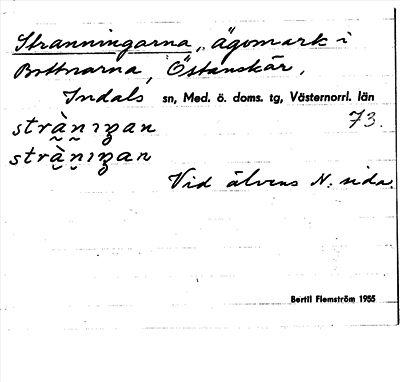 Stranningarna, ägomark i
Bottnarna, Östanskär,
Indals sn, Med. ö. doms. tg, Västernorrl. län
strànıŋan 73.
strànıŋan
Vid älvens N. sida.
Bertil Flemström 1955